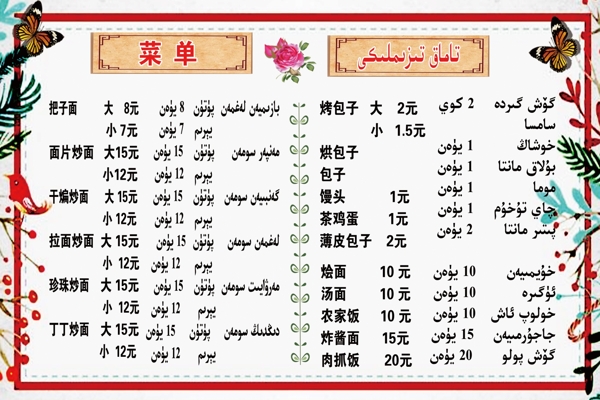 菜单
تاماق تىزىملىكى
把子面 大 8元 8 يۈەن پۈتۈن بازىمىيەن لەغمەن
小 7元 7 يۈەن يېرىم
面片炒面 大15元 15 يۈەن پۈتۈن مەنپەر سومەن
小12元 12 يۈەن يېرىم
干煸炒面 大 15元 15 يۈەن پۈتۈن گەنبىيەن سومەن
小 12元 12 يۈەن يېرىم
拉面炒面 大 15元 15 يۈەن پۈتۈن لەغمەن سومەن
小 12元 12 يۈەن يېرىم
珍珠炒面 大 15元 15 يۈەن پۈتۈن مەرۋايىت سومەن
小 12元 12 يۈەن يېرىم
丁丁炒面 大 15元 15 يۈەن پۈتۈن دىڭدىڭ سومەن
小 12元 12 يۈەن يېرىم
烤包子 大 2元 2 كوي گۆش گىردە
小 1.5元 سامسا
烘包子 1 يۈەن خوشاڭ
包子 1 يۈەن بۇلاق مانتا
馒头 1元 1 يۈەن موما
茶鸡蛋 1元 1 يۈەن چاي تۇخۇم
薄皮包子 2元 2 يۈەن پىتىر مانتا
烩面 10 元 10 يۈەن خۇيمىيەن
汤面 10 元 10 يۈەن ئۈگرە
农家饭 10 元 10 يۈەن خولوپ ئاش
炸酱面 15元 15 يۈەن جاجۇرمىيەن
肉抓饭 20元 20 يۈەن گۆش پولو